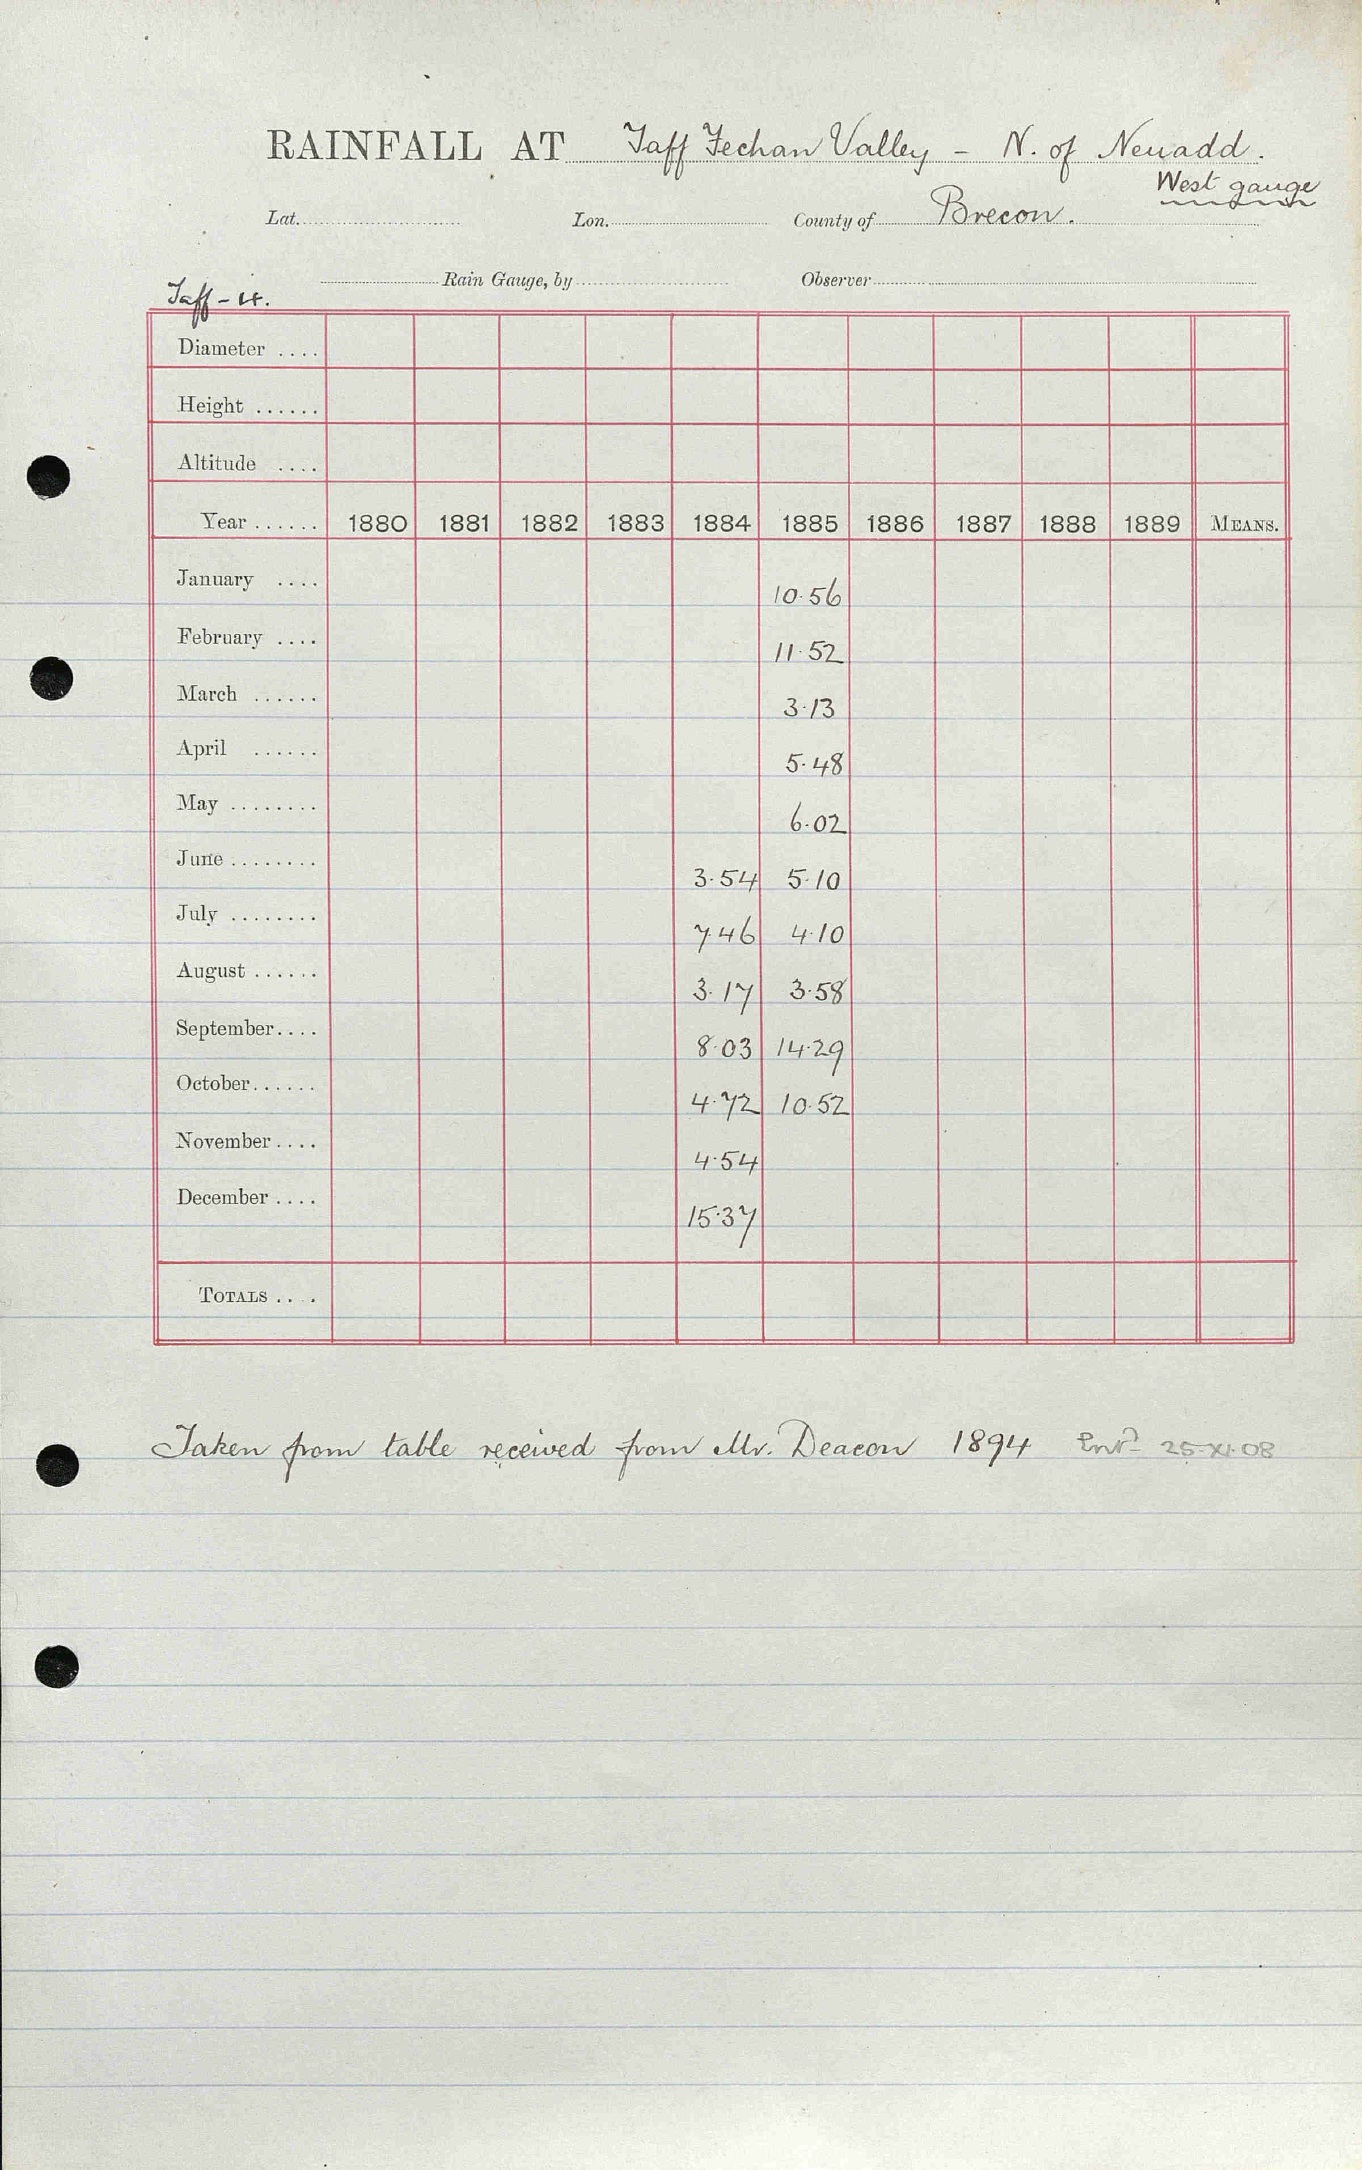 RAINFALL AT Taff Fechan Valley - N. of Neuadd.
West gauge
Lat. Lon. County of Brecon.
Rain Gauge, by Observer
Taff - 4.
Diameter ....
Height ......
Altitude ....
Year ...... 1880 1881 1882 1883 1884 1885 1886 1887 1888 1889 MEANS.
January .... 10.56
February .... 11.52
March ...... 3.13
April ...... 5.48
May ........ 6.02
June ........ 3.54 5.10
July ........ 7.46 4.10
August ...... 3.17 3.58
September.... 8.03 14.29
October...... 4.72 10.52
November .... 4.54
December .... 15.37
TOTALS ....
Taken from table received from Mr. Deacon 1894 25.XI.08